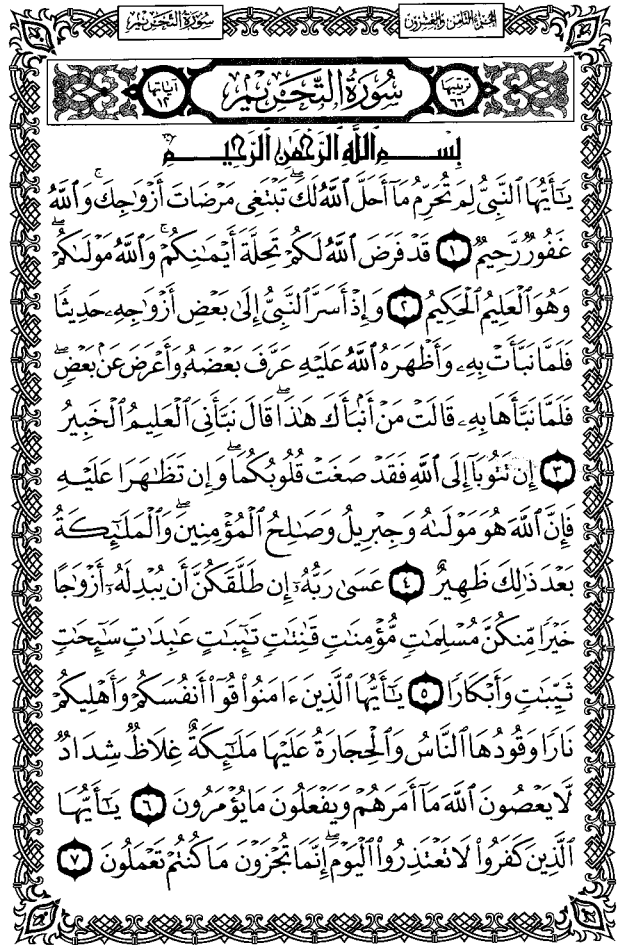 الجزء الثامن والعشرون
سورة التحريم
ترتيبها ٦٦
سُورَةُ التَّحْرِيمِ
آياتها ١٢
بِسْمِ ٱللَّهِ ٱلرَّحْمَٰنِ ٱلرَّحِيمِ
يَٰٓأَيُّهَا ٱلنَّبِىُّ لِمَ تُحَرِّمُ مَآ أَحَلَّ ٱللَّهُ لَكَ ۖ تَبْتَغِى مَرْضَاتَ أَزْوَٰجِكَ ۚ وَٱللَّهُ
غَفُورٌ رَّحِيمٌ ١ قَدْ فَرَضَ ٱللَّهُ لَكُمْ تَحِلَّةَ أَيْمَٰنِكُمْ ۚ وَٱللَّهُ مَوْلَىٰكُمْ ۖ
وَهُوَ ٱلْعَلِيمُ ٱلْحَكِيمُ ٢ وَإِذْ أَسَرَّ ٱلنَّبِىُّ إِلَىٰ بَعْضِ أَزْوَٰجِهِۦ حَدِيثًا
فَلَمَّا نَبَّأَتْ بِهِۦ وَأَظْهَرَهُ ٱللَّهُ عَلَيْهِ عَرَّفَ بَعْضَهُۥ وَأَعْرَضَ عَنۢ بَعْضٍ ۖ
فَلَمَّا نَبَّأَهَا بِهِۦ قَالَتْ مَنْ أَنۢبَأَكَ هَٰذَا ۖ قَالَ نَبَّأَنِىَ ٱلْعَلِيمُ ٱلْخَبِيرُ
٣ إِن تَتُوبَآ إِلَى ٱللَّهِ فَقَدْ صَغَتْ قُلُوبُكُمَا ۖ وَإِن تَظَٰهَرَا عَلَيْهِ
فَإِنَّ ٱللَّهَ هُوَ مَوْلَىٰهُ وَجِبْرِيلُ وَصَٰلِحُ ٱلْمُؤْمِنِينَ ۖ وَٱلْمَلَٰٓئِكَةُ
بَعْدَ ذَٰلِكَ ظَهِيرٌ ٤ عَسَىٰ رَبُّهُۥٓ إِن طَلَّقَكُنَّ أَن يُبْدِلَهُۥٓ أَزْوَٰجًا
خَيْرًا مِّنكُنَّ مُسْلِمَٰتٍ مُّؤْمِنَٰتٍ قَٰنِتَٰتٍ تَٰٓئِبَٰتٍ عَٰبِدَٰتٍ سَٰٓئِحَٰتٍ
ثَيِّبَٰتٍ وَأَبْكَارًا ٥ يَٰٓأَيُّهَا ٱلَّذِينَ ءَامَنُوا۟ قُوٓا۟ أَنفُسَكُمْ وَأَهْلِيكُمْ
نَارًا وَقُودُهَا ٱلنَّاسُ وَٱلْحِجَارَةُ عَلَيْهَا مَلَٰٓئِكَةٌ غِلَاظٌ شِدَادٌ
لَّا يَعْصُونَ ٱللَّهَ مَآ أَمَرَهُمْ وَيَفْعَلُونَ مَا يُؤْمَرُونَ ٦ يَٰٓأَيُّهَا
ٱلَّذِينَ كَفَرُوا۟ لَا تَعْتَذِرُوا۟ ٱلْيَوْمَ ۖ إِنَّمَا تُجْزَوْنَ مَا كُنتُمْ تَعْمَلُونَ ٧